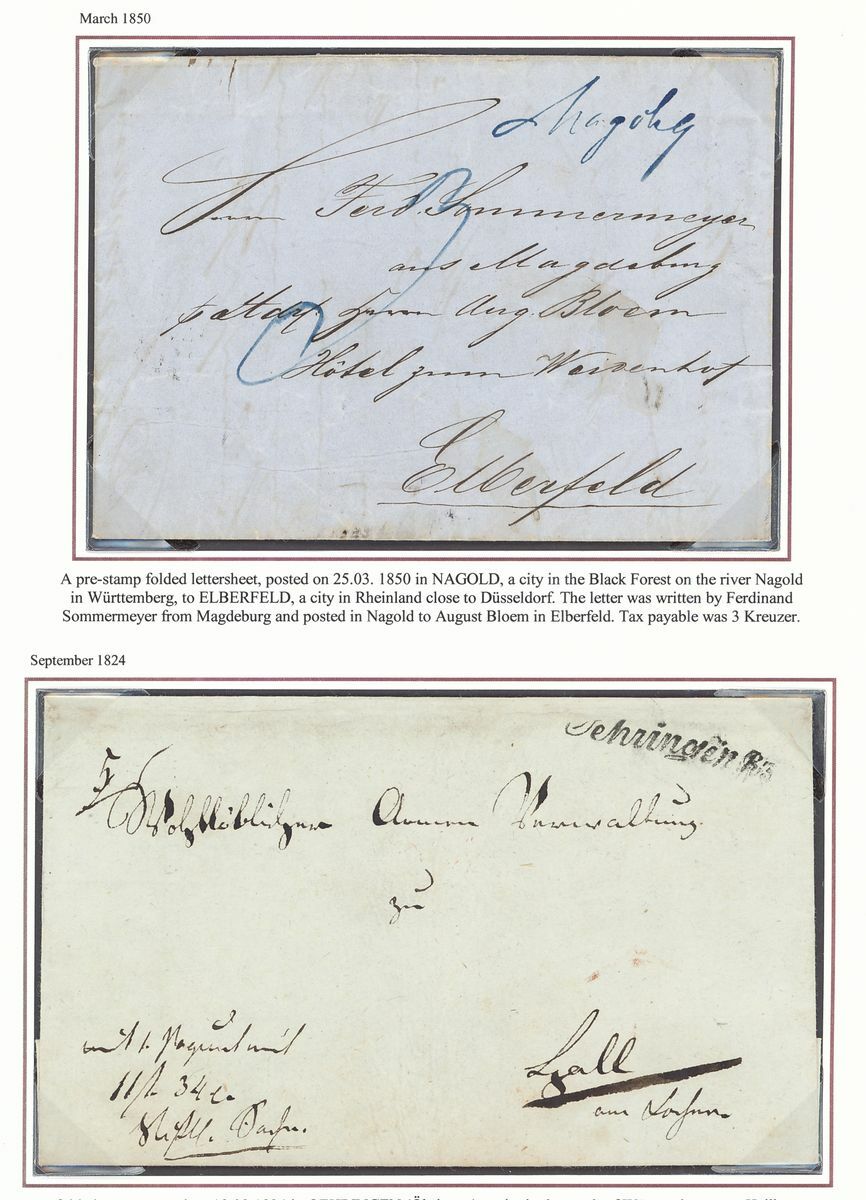 March 1850
Magdbg
Herrn Ferd. Sommermeyer
aus Magdeburg
Herrn Aug. Bloem
Hôtel zum Weidenhof
Elberfeld
A pre-stamp folded lettersheet, posted on 25.03. 1850 in NAGOLD, a city in the Black Forest on the river Nagold
in Württemberg, to ELBERFELD, a city in Rheinland close to Düsseldorf. The letter was written by Ferdinand
Sommermeyer from Magdeburg and posted in Nagold to August Bloem in Elberfeld. Tax payable was 3 Kreuzer.
September 1824
Oehringen
Wohllöblicher Armen Verwaltung
zu
mit 1 Paquet mit
11 f. 34 c.
Hall
am Kocher